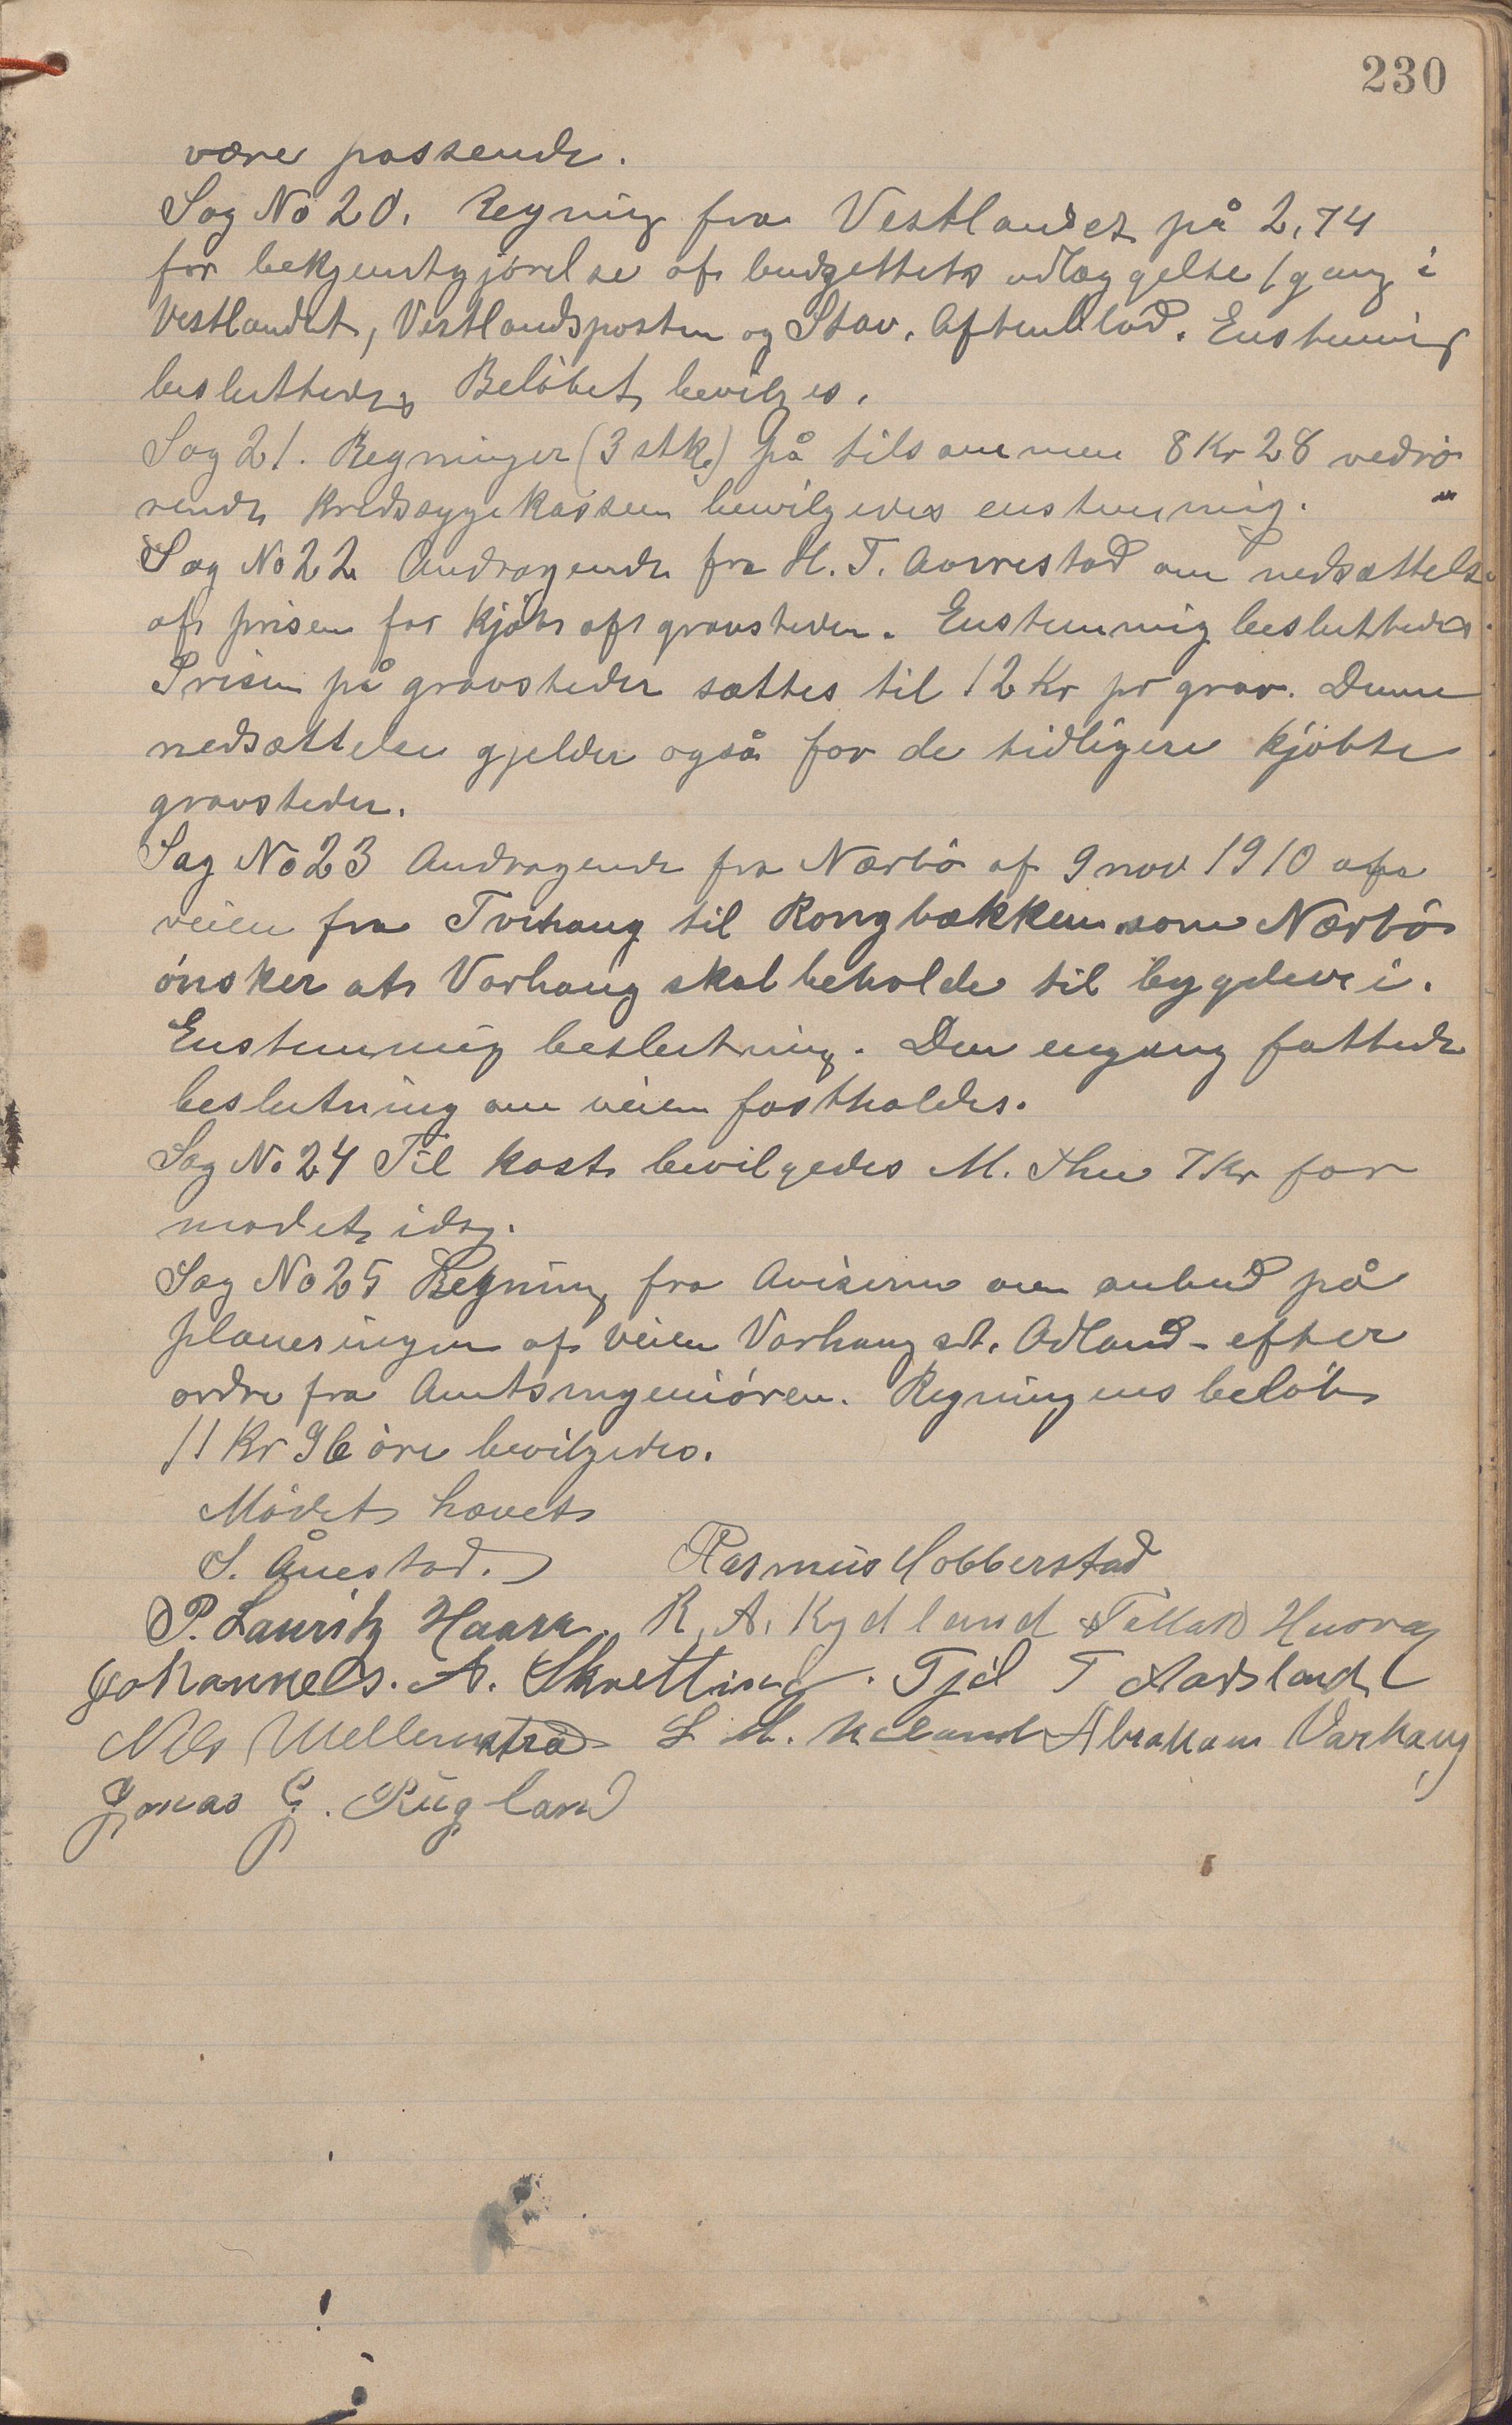 230
være passende.
Sag No 20. Regning fra Vestlandet på 2,74
for bekjendtgjörelse af budgettets udlæggelse 1 gang i
Vestlandet, Vestlandsposten og Stav. Aftenblad. Enstemmig
besluttedes Belöbet bevilges.
Sag 21. Regninger (3 stk) på tilsammen 8 Kr 28 vedrö
rende Kredssygekassen bevilgedes enstemmig.
Sag No 22 Andragende fra H. T. Aarrestad om nedsættelse
af prisen for kjöb af gravsteder. Enstemmig besluttedes
Prisen på gravsteder sættes til 12 Kr pr grav. Denne
nedsættelse gjelder også for de tidligere kjöbte
gravsteder.
Sag No 23 Andragende fra Nærbö af 9 nov 1910 af
veien fra Tvihaug til Rongbækken som Nærbö
önsker at Varhaug skal beholde til bygdevei.
Enstemmig beslutning. Den engang fattede
beslutning om veien fastholdes.
Sag No 24 Til kost bevilgedes M. Thu 7 Kr for
mödet idag.
Sag No 25 Regning fra Aviserne om anbud på
planeringen af veien Varhaug st. Odland - efter
ordre fra Amtsingeniören. Regningens belöb
11 Kr 96 öre bevilgedes.
Mödet hævet
S. Ånestad. Rasmus Hobberstad
P. Lauritz Haarr. R. A. Rydland Tellak Husvæg
Johannes. A. Skretting. Tjel T Aadsland
Nils Mellemstrad L. M. Abraham Varhaug
Jonas G. Rugland